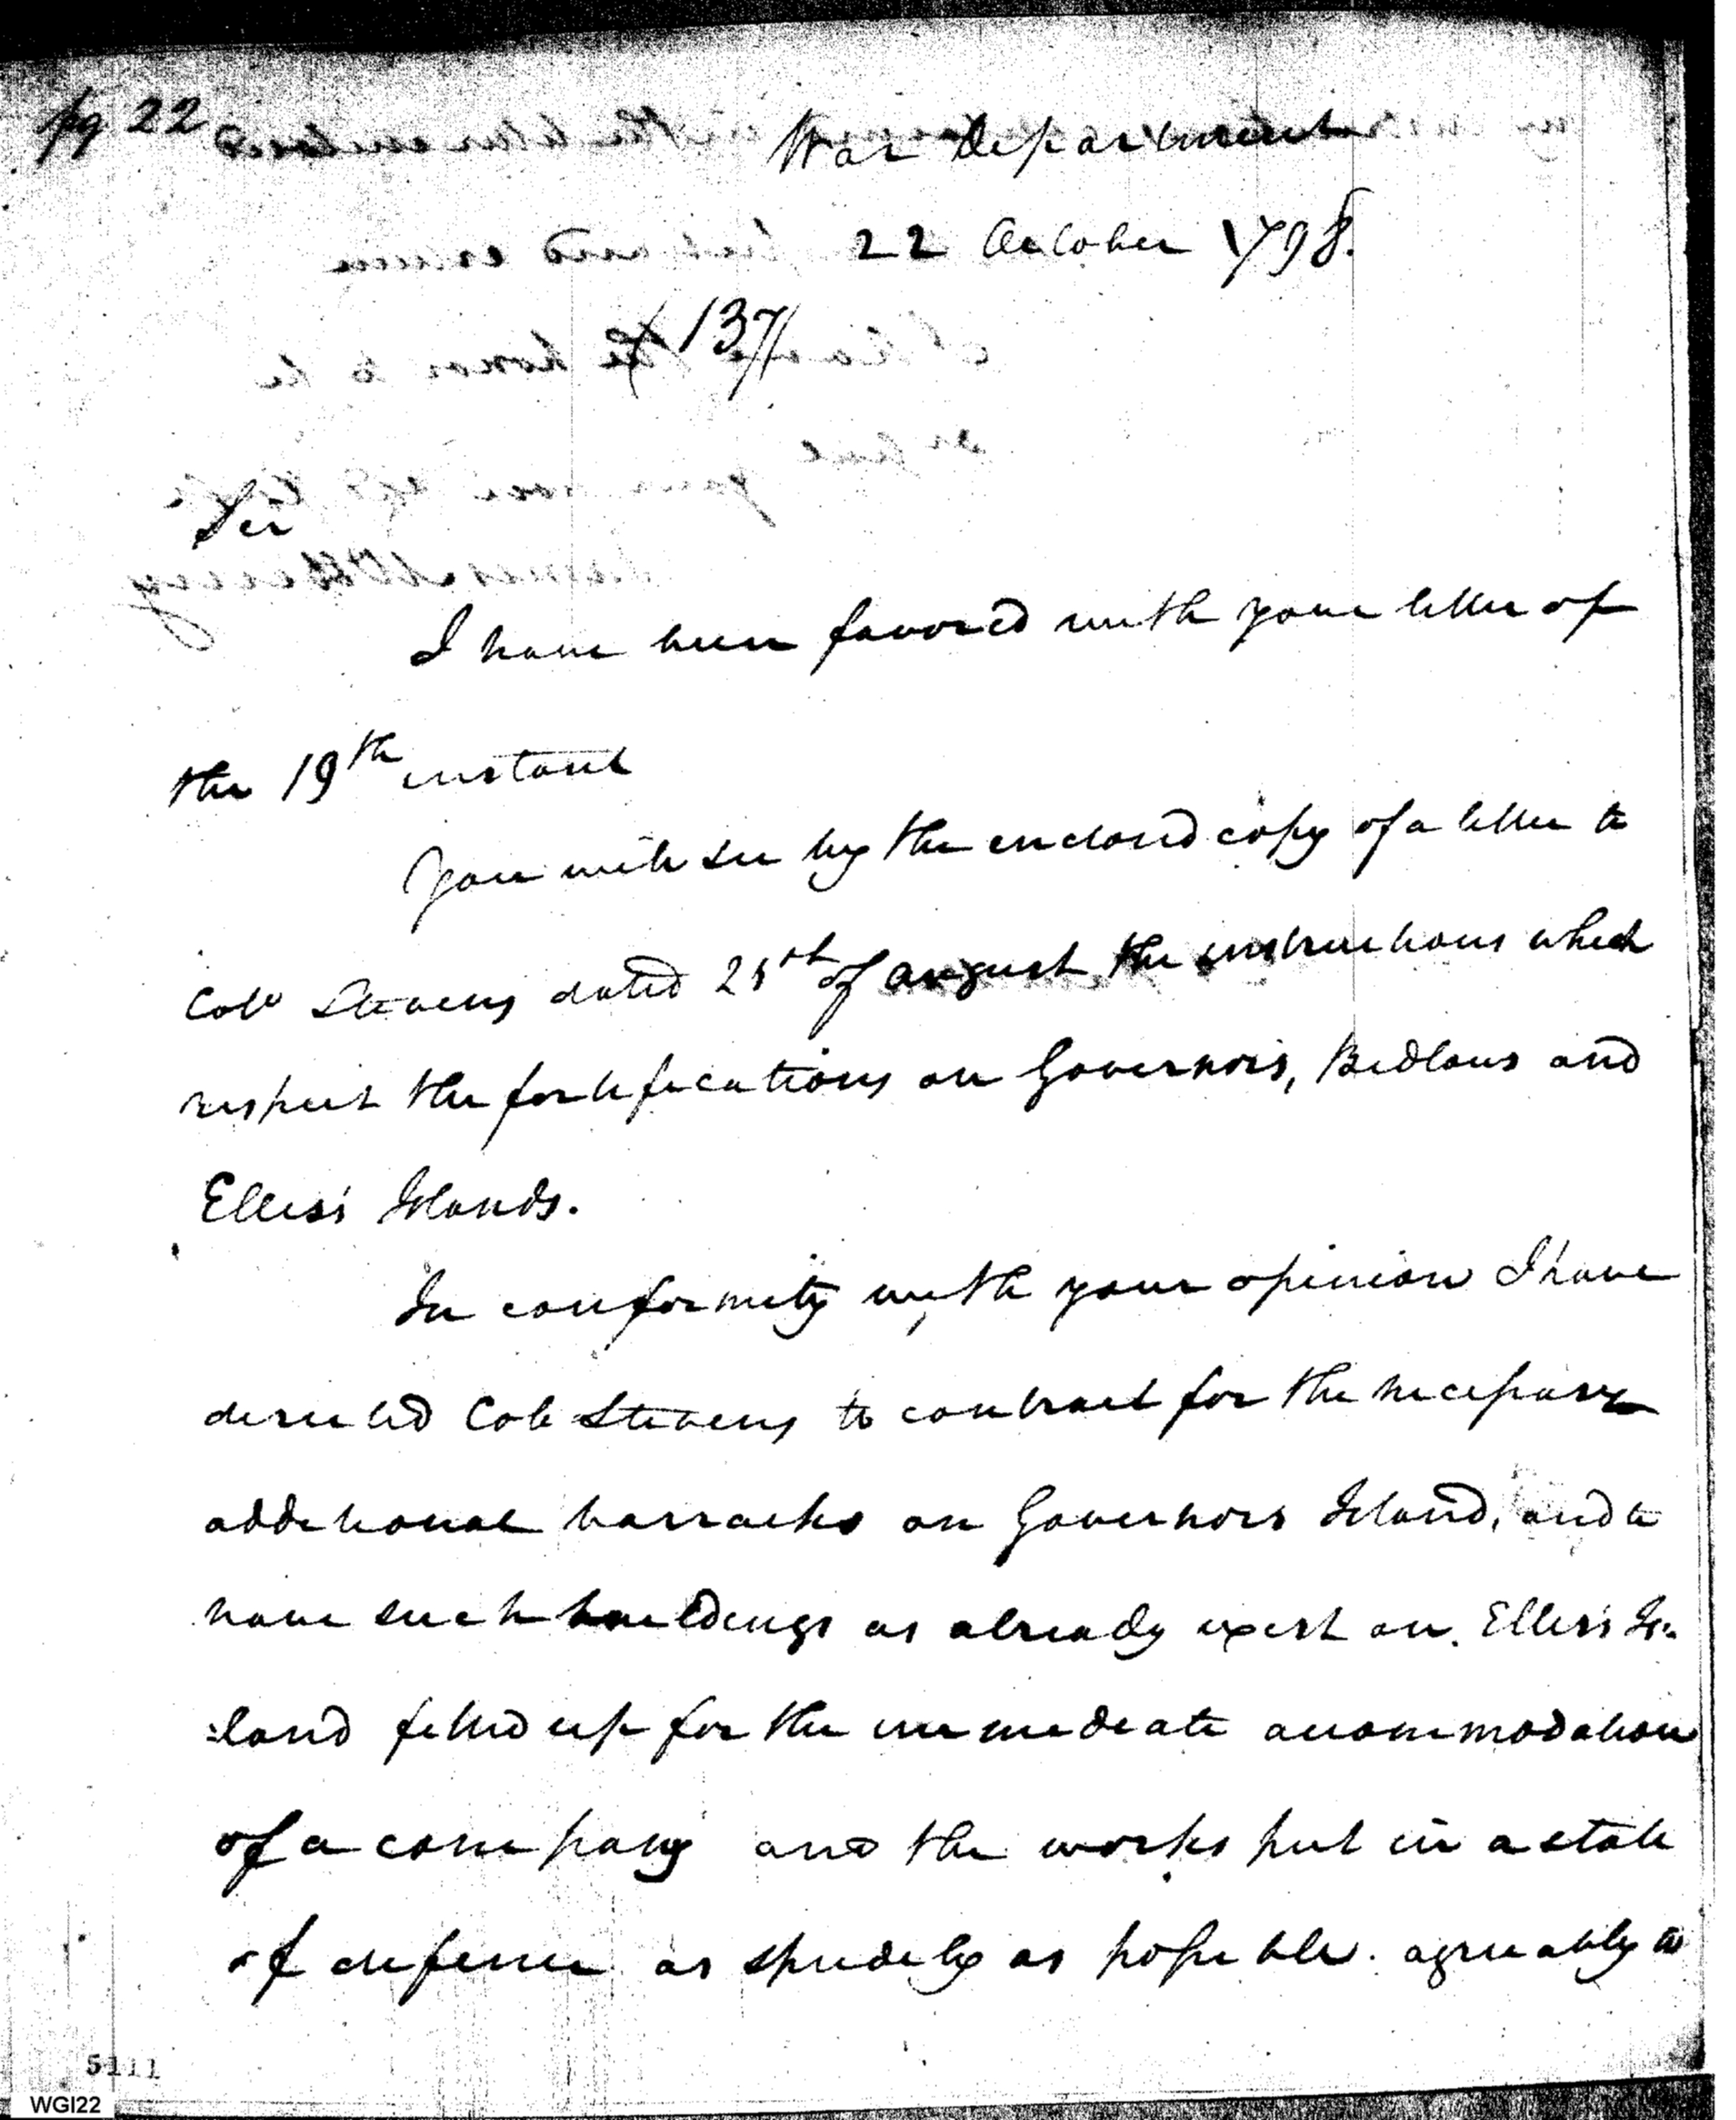 pg 22
War Department
22 October 1798.
137
Sir
I have been favored with your letter of
the 19th instant
You will see by the enclosed copy of a letter to
Coll Stevens dated 25th of august the instructions which
respect the fortifications on Governors, Bedlows and
Ellis's Islands.
In conformity with your opinion I have
directed Coll Stevens to contract for the necessary
additional barracks on Governors Island, and to
have such buildings as already exist on Ellis's Is-
land fitted up for the immediate accommodation
of a company and the works put in a state
of defence as speedily as possible. agreeably to
5111
WGI22